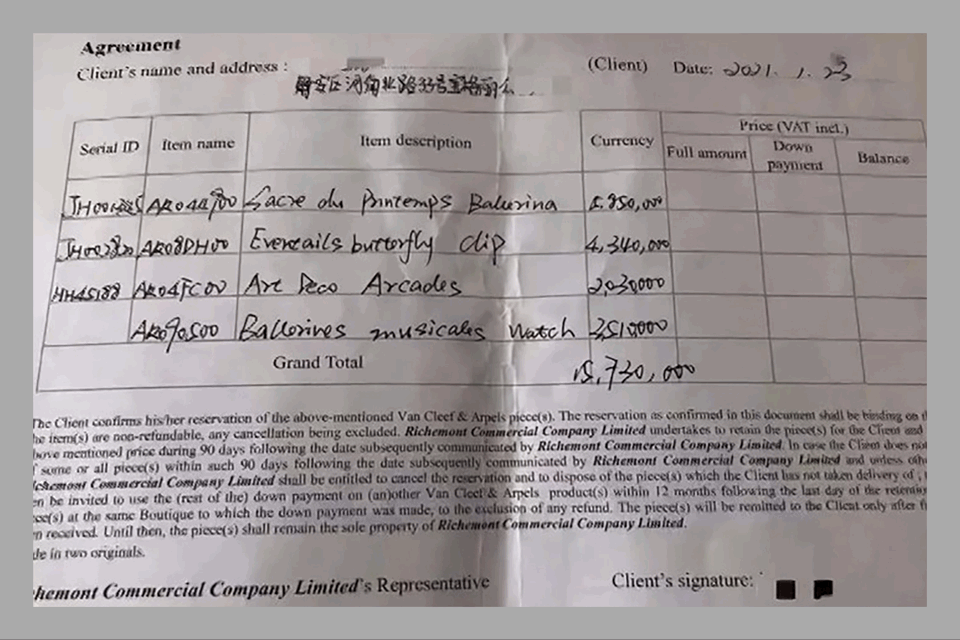 Agreement
Client's name and address : (Client) Date: 2021. 1. 23
Price (VAT incl.)
Serial ID Item name Item description Currency Full amount Down payment Balance
Sacre du Printemps Ballerina 5,850,000
AR08DH00 Eventails butterfly clip 4,340,000
HH45188 AR04FC00 Art Deco Arcades 2,030000
Ballerines musicales Watch 3510000
Grand Total 15,730,000
The Client confirms his/her reservation of the above-mentioned Van Cleef & Arpels piece(s). The reservation as confirmed in this document shall be binding on
he item(s) are non-refundable, any cancellation being excluded. Richemont Commercial Company Limited undertakes to retain the piece(s) for the Client and
bove mentioned price during 90 days following the date subsequently communicated by Richemont Commercial Company Limited. In case the Client does not
f some or all piece(s) within such 90 days following the date subsequently communicated by Richemont Commercial Company Limited and unless
chemont Commercial Company Limited shall be entitled to cancel the reservation and to dispose of the piece(s) which the Client has not taken delivery of ;
en be invited to use the (rest of the) down payment on (an)other Van Cleef & Arpels product(s) within 12 months following the last day of the
ce(s) at the same Boutique to which the down payment was made, to the exclusion of any refund. The piece(s) will be remitted to the Client only after
n received. Until then, the piece(s) shall remain the sole property of Richemont Commercial Company Limited.
de in two originals.
hemont Commercial Company Limited's Representative Client's signature: